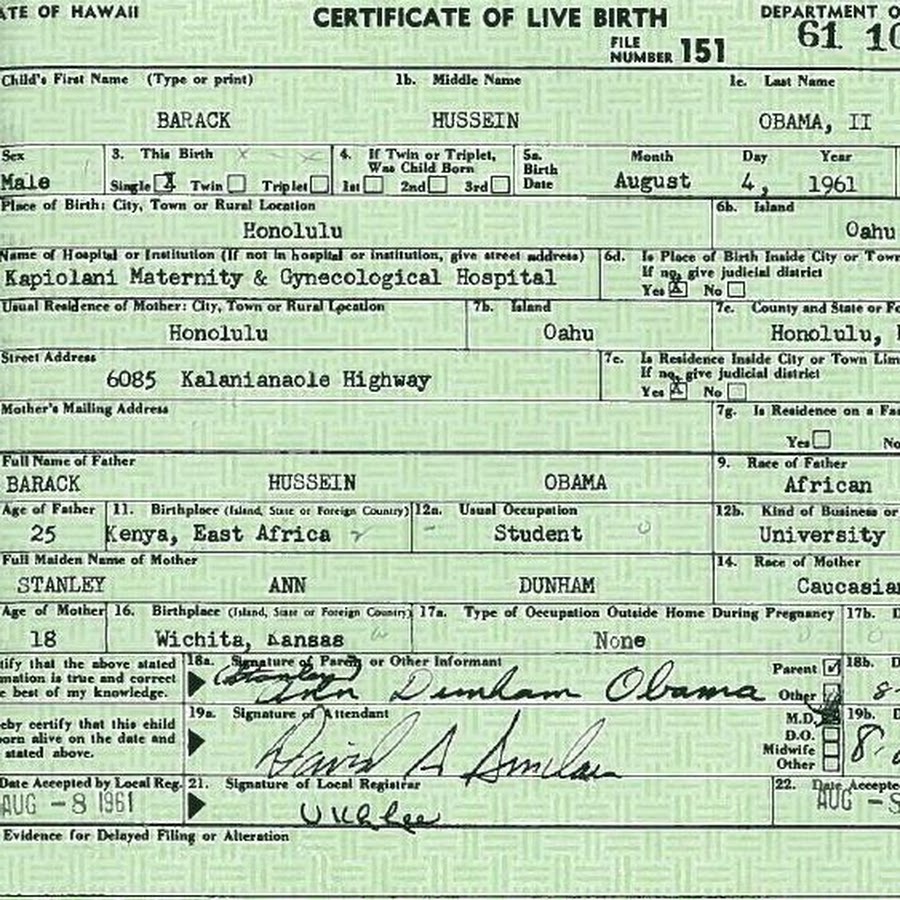 ATE OF HAWAII CERTIFICATE OF LIVE BIRTH DEPARTMENT O
FILE NUMBER 151 61 10
Child's First Name (Type or print) 1b. Middle Name 1c. Last Name
BARACK HUSSEIN OBAMA, II
Sex 3. This Birth 4. If Twin or Triplet, Was Child Born 5a. Birth Date Month Day Year
Male Single X Twin Triplet 1st 2nd 3rd August 4, 1961
Place of Birth: City, Town or Rural Location 6b. Island
Honolulu Oahu
Name of Hospital or Institution (If not in hospital or institution, give street address) 6d. Is Place of Birth Inside City or Town
If no, give judicial district
Kapiolani Maternity & Gynecological Hospital Yes X No
Usual Residence of Mother: City, Town or Rural Location 7b. Island 7c. County and State or Fo
Honolulu Oahu Honolulu,
Street Address 7e. Is Residence Inside City or Town Lim
If no, give judicial district
6085 Kalanianaole Highway Yes X No
Mother's Mailing Address 7g. Is Residence on a Fa
Yes No
Full Name of Father 9. Race of Father
BARACK HUSSEIN OBAMA African
Age of Father 11. Birthplace (Island, State or Foreign Country) 12a. Usual Occupation 12b. Kind of Business or
25 Kenya, East Africa Student University
Full Maiden Name of Mother 14. Race of Mother
STANLEY ANN DUNHAM Caucasian
Age of Mother 16. Birthplace (Island, State or Foreign Country) 17a. Type of Occupation Outside Home During Pregnancy 17b. D
18 Wichita, Kansas None
tify that the above stated 18a. Signature of Parent or Other Informant Parent 18b. D
mation is true and correct (Stanley)
e best of my knowledge. Ann Dunham Obama Other 8-
eby certify that this child 19a. Signature of Attendant M.D. 19b. D
orn alive on the date and D.O.
stated above. David A Sinclair Midwife 8-
Other
Date Accepted by Local Reg. 21. Signature of Local Registrar 22. Date Accepte
AUG -8 1961 U K L Lee AUG -8
Evidence for Delayed Filing or Alteration